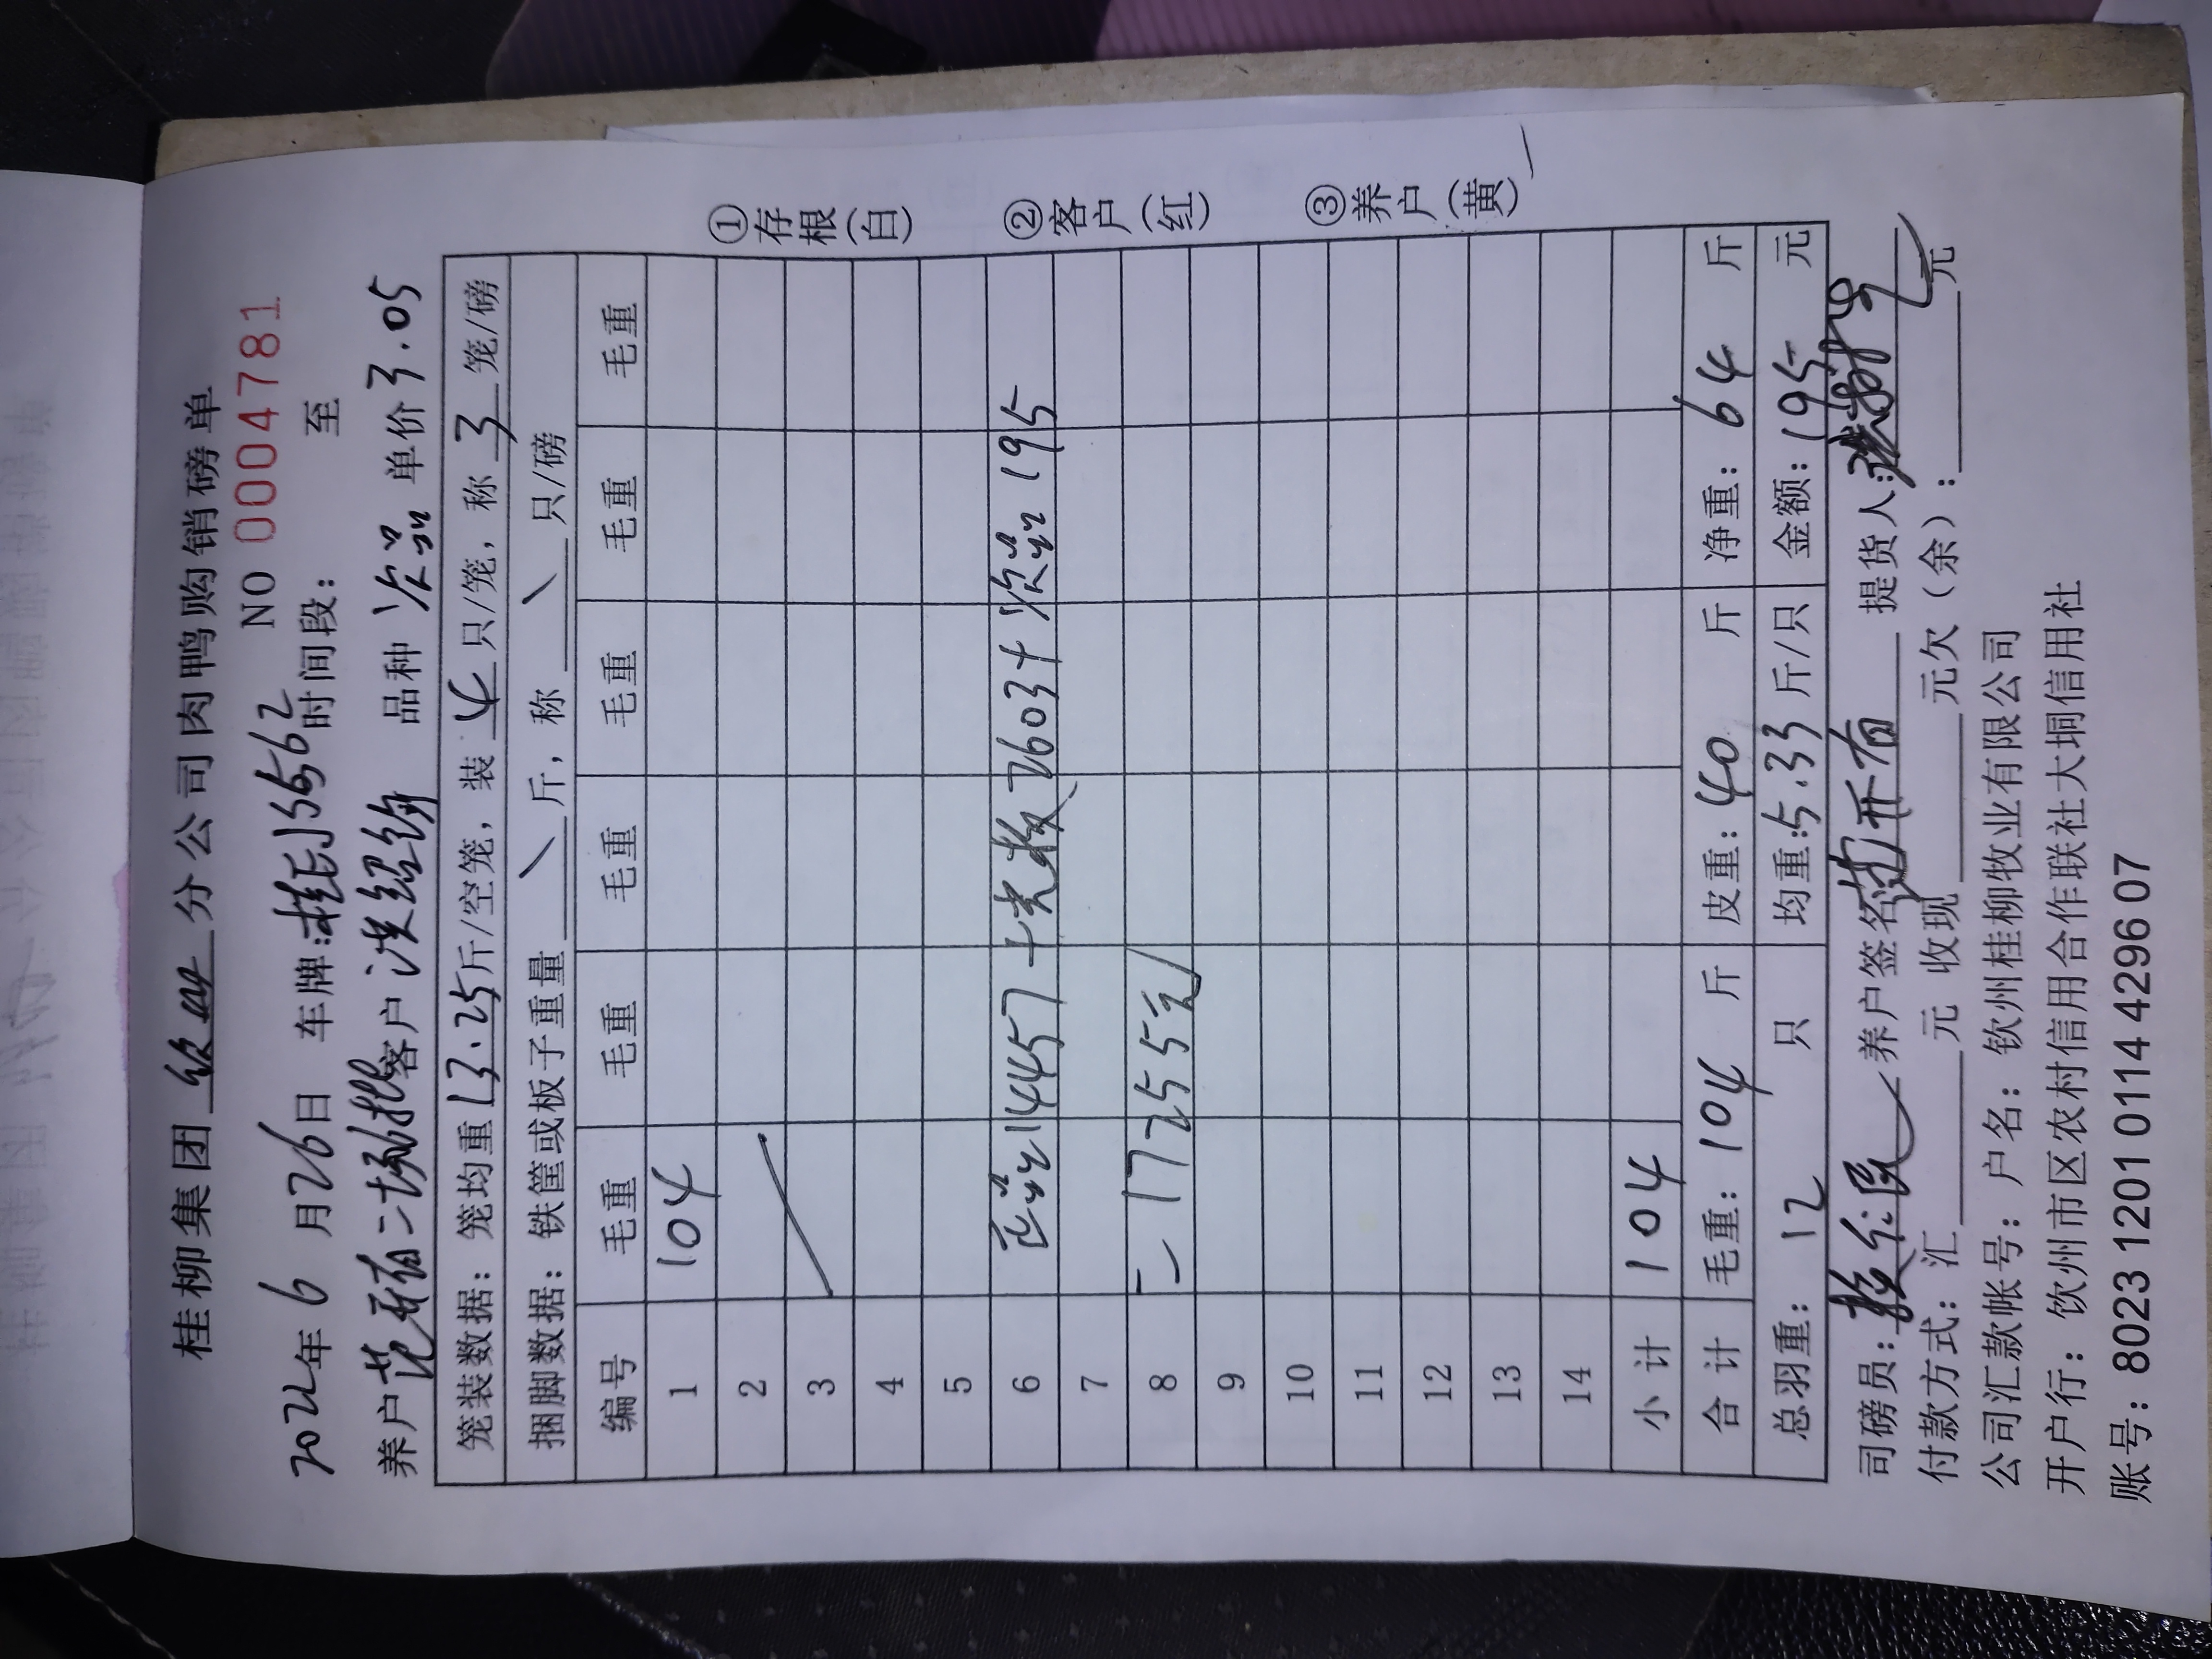 桂柳集团 钦州 分公司肉鸭购销磅单
NO 0004781
2022年 6 月 26 日 车牌: 桂J35562 时间段: 至
养户 范开有二场 客户 洪绍 品种 次品 单价 3.05
笼装数据: 笼均重 13.25 斤/空笼, 装 4 只/笼, 称 3 笼/磅
捆脚数据: 铁筐或板子重量 \ 斤, 称 \ 只/磅
编号 毛重 毛重 毛重 毛重 毛重 毛重
1 104
2
3
4
5
6 正品14457+大数2603+次品195
7
8 =17255元
9
10
11
12
13
14
小计 104
合计 毛重: 104 斤 皮重: 40 斤 净重: 64 斤
总羽重: 12 只 均重: 5.33 斤/只 金额: 195 元
司磅员: 养户签名 范开有 提货人:
付款方式: 汇 元 收现 元欠(余): 元
公司汇款帐号: 户名: 钦州桂柳牧业有限公司
开户行: 饮州市区农村信用合作联社大垌信用社
账号: 8023 1201 0114 4296 07
①存根(白)
②客户(红)
③养户(黄)